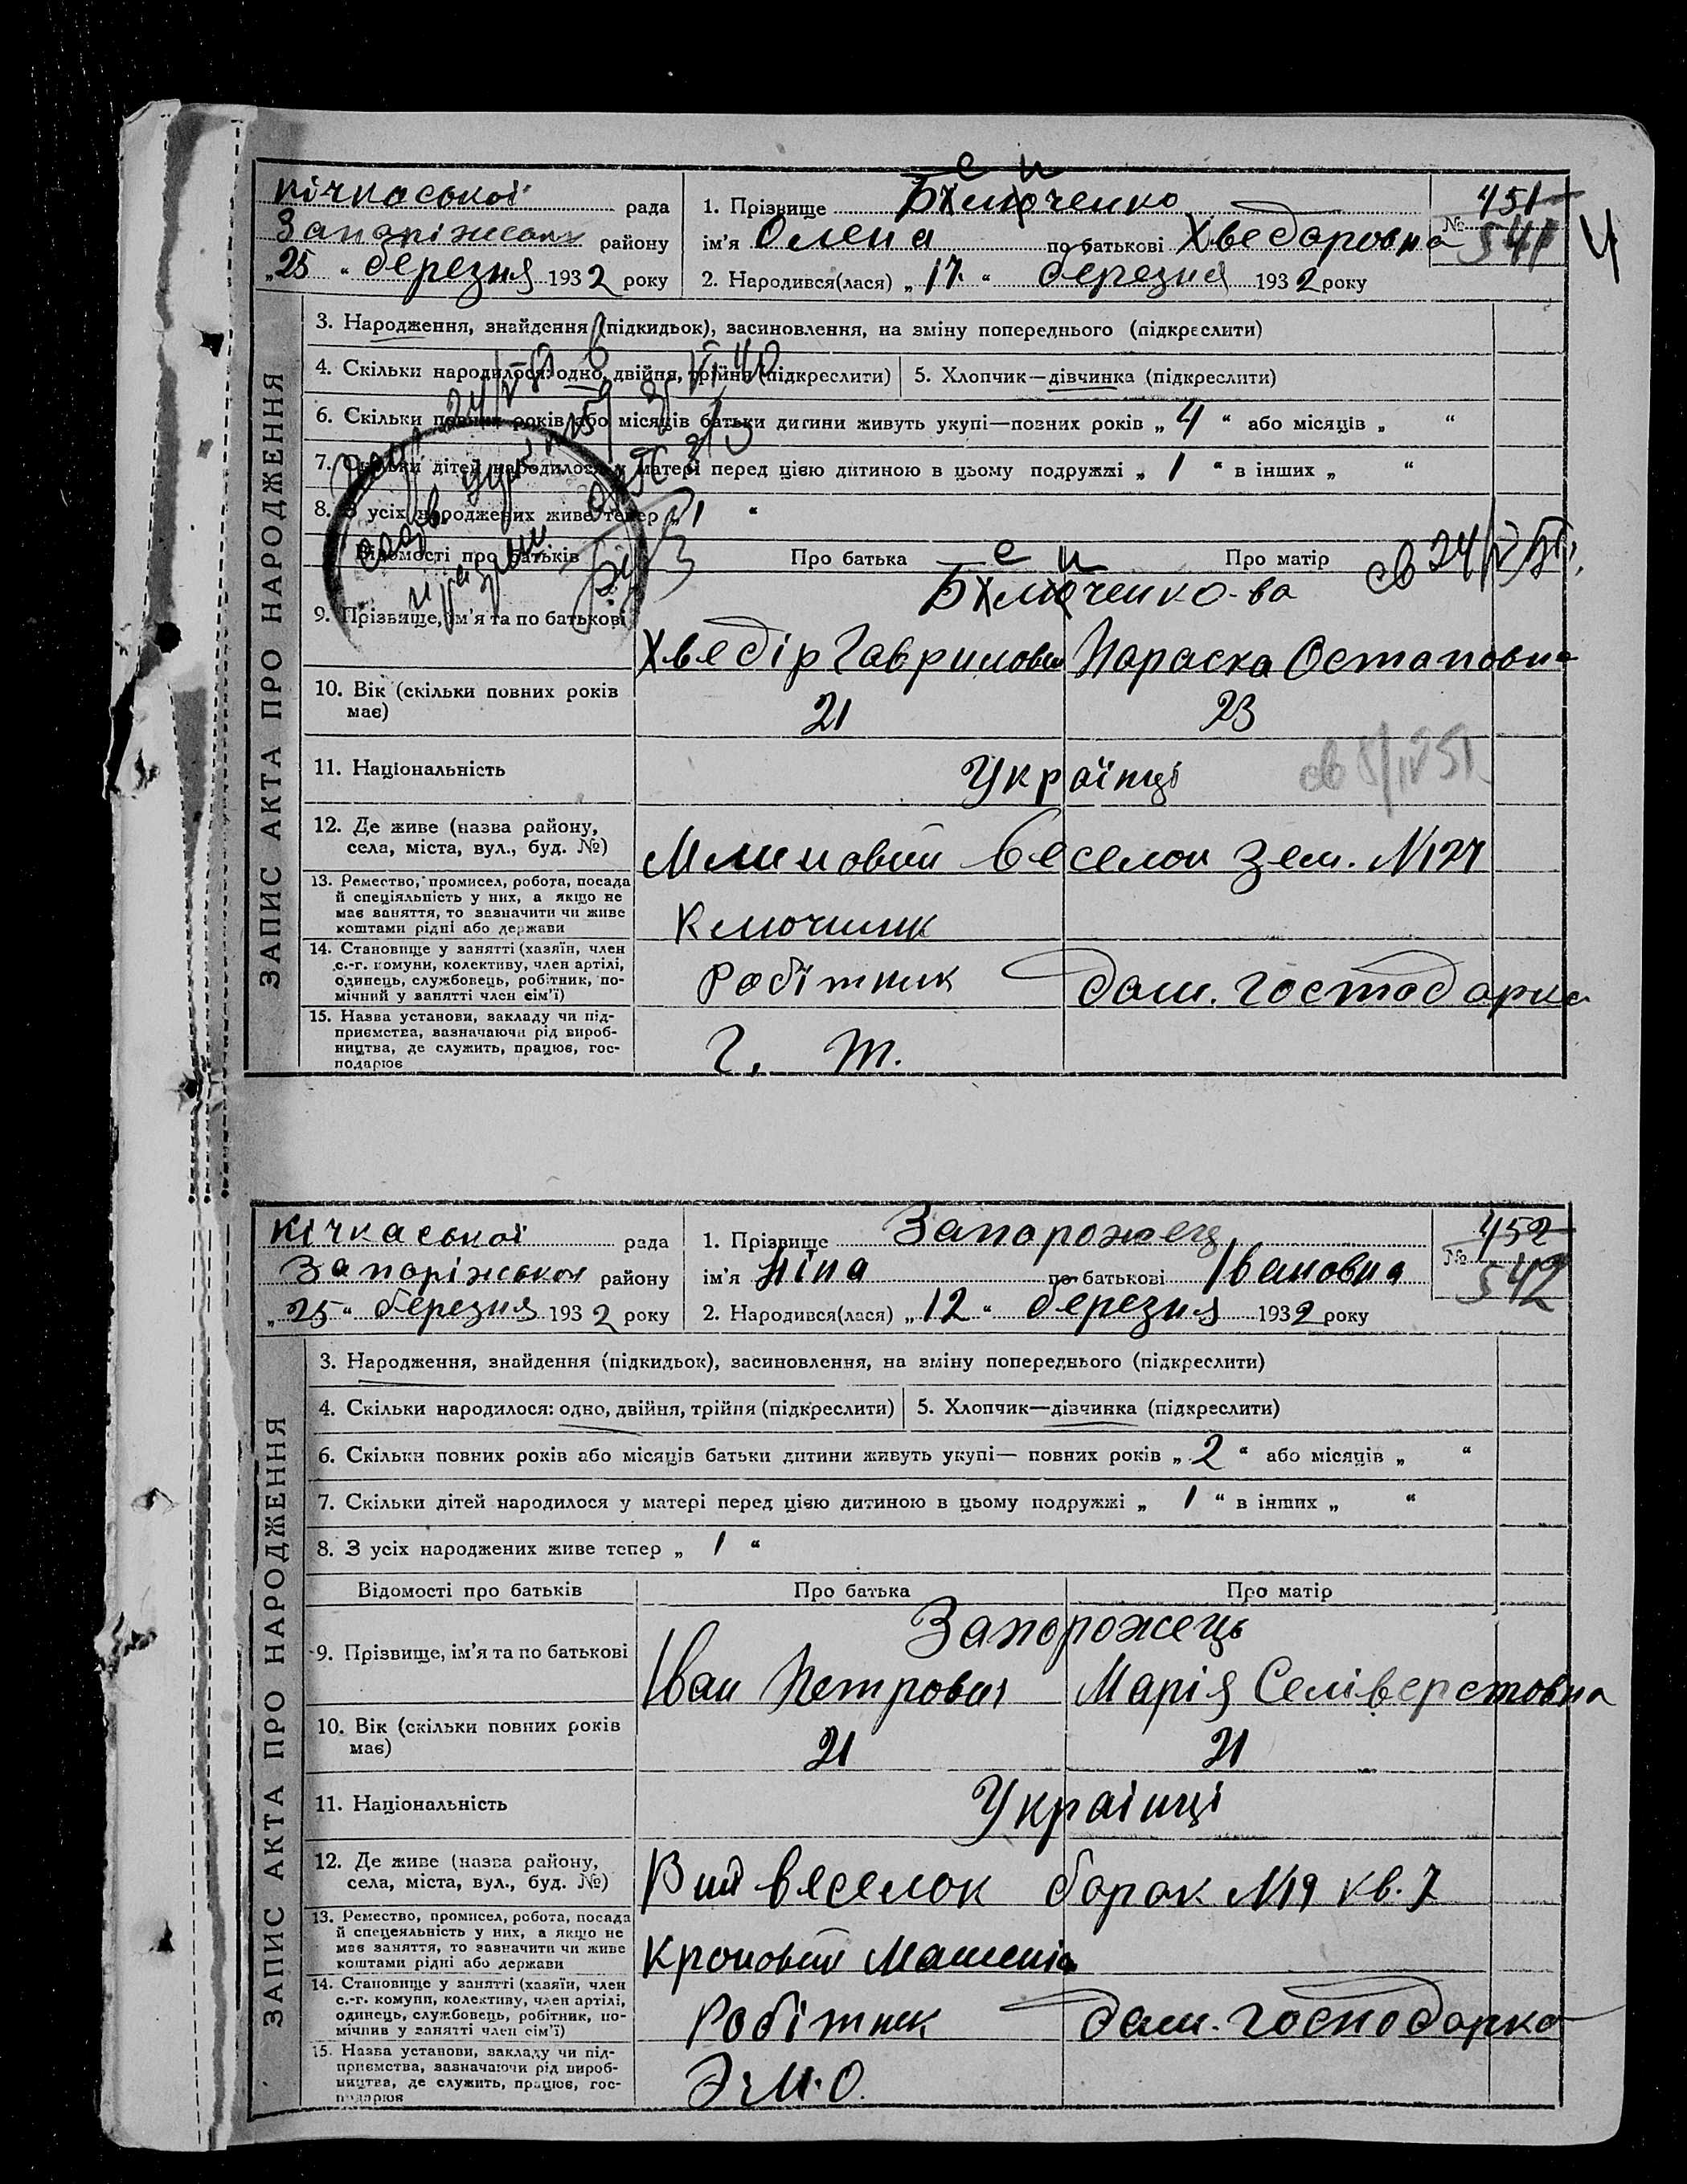 е и
Кічкаської рада
1. Прізвище Білюченко
451
Запоріжськ району
ім'я Олена по батькові Хведоровна
№ 541
Ч
„25“ березня 1932 року
2. Народився(лася) „17“ березня 1932 року
ЗАПИС АКТА ПРО НАРОДЖЕННЯ
3. Народження, знайдення (підкидьок), засиновлення, на зміну попереднього (підкреслити)
4. Скільки народилося: одно, двійня, трійня (підкреслити) 5. Хлопчик—дівчинка (підкреслити)
6. Скільки повних років або місяців батьки дитини живуть укупі—повних років „4“ або місяців „ “
7. Скільки дітей народилося у матері перед цією дитиною в цьому подружжі „1“ в інших „ “
8. З усіх народжених живе тепер „1“
Відомості про батьків Про батька Про матір
св 24/IV 51.
е и
Білюченко-ва
9. Прізвище, ім'я та по батькові
Хведір Гаврилович Параска Остаповна
10. Вік (скільки повних років має)
21 23
11. Національність Українці
св 5/IV 51
12. Де живе (назва району, села, міста, вул., буд. №)
веселок зем. №127
13. Ремество, промисел, робота, посада й спеціяльність у них, а якщо не має заняття, то зазначити чи живе коштами рідні або держави
Ключник
14. Становище у занятті (хазяїн, член с.-г. комуни, колективу, член артілі, одинець, службовець, робітник, помічний у занятті член сім'ї)
Робітник дом. господарка
15. Назва установи, закладу чи підприємства, зазначаючи рід виробництва, де служить, працює, господарює
Г. Т.
Кічкаської рада
1. Прізвище Запорожец
452
Запоріжськ району
ім'я Ніна по батькові Івановна
№ 542
„25“ березня 1932 року
2. Народився(лася) „12“ березня 1932 року
ЗАПИС АКТА ПРО НАРОДЖЕННЯ
3. Народження, знайдення (підкидьок), засиновлення, на зміну попереднього (підкреслити)
4. Скільки народилося: одно, двійня, трійня (підкреслити) 5. Хлопчик—дівчинка (підкреслити)
6. Скільки повних років або місяців батьки дитини живуть укупі— повних років „2“ або місяців „ “
7. Скільки дітей народилося у матері перед цією дитиною в цьому подружжі „1“ в інших „ “
8. З усіх народжених живе тепер „1“
Відомості про батьків Про батька Про матір
Запорожець
9. Прізвище, ім'я та по батькові
Іван Петрович Марія Селіверстовна
10. Вік (скільки повних років має)
21 21
11. Національність Українці
12. Де живе (назва району, села, міста, вул., буд. №)
веселок барак №19 кв. 7
13. Ремество, промисел, робота, посада й спецеяльність у них, а якщо не має заняття, то зазначити чи живе коштами рідні або держави
Кроновий Машеніс
14. Становище у занятті (хазяїн, член с.-г. комуни, колективу, член артілі, одинець, службовець, робітник, помічнив у занятті член сім'ї)
Робітник дом. господарка
15. Назва установи, закладу чи підприємства, зазначаючи рід виробництва, де служить, працює, господарює